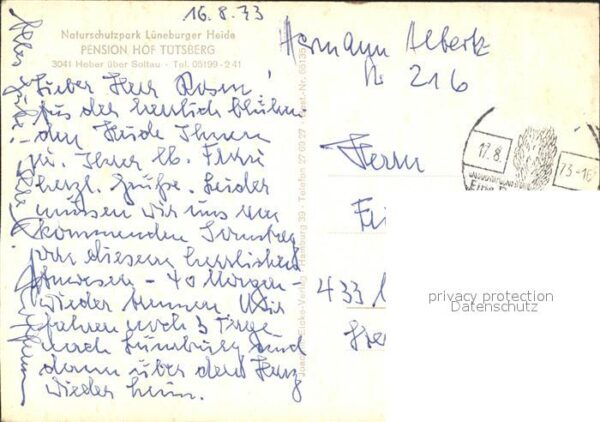 16.8.73
Naturschutzpark Lüneburger Heide
PENSION HOF TÜTSBERG
3041 Heber über Soltau · Tel. 05199-241
Lieber Herr Rosen!
Aus der herrlich blühen-
den Heide Ihnen
u. Ihrer lb. Frau
herzl. Grüße. Leider
müssen wir uns am
kommenden Samstag
von diesem herrlichen
Anwesen - 40 Morgen -
wieder trennen. Wir
fahren noch 3 Tage
nach Lüneburg und
dann über den Harz
wieder heim.
Alles Gute!
Hermann Albertz
Nr. 216
Herrn
433
17.8.
73-16
privacy protection
Datenschutz
Hamburg 39 · Telefon 27 69 27